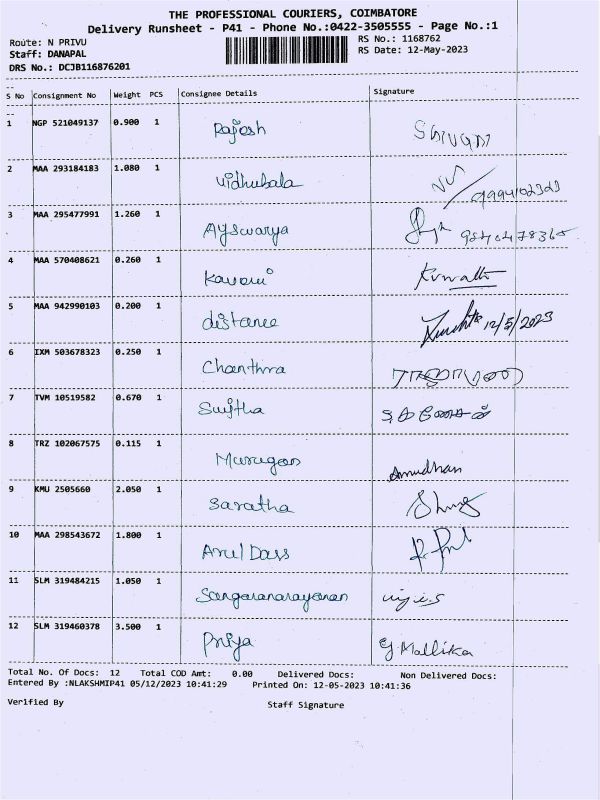 THE PROFESSIONAL COURIERS, COIMBATORE
Delivery Runsheet - P41 - Phone No.:0422-3505555 - Page No.:1
Route: N PRIVU RS No.: 1168762
Staff: DANAPAL RS Date: 12-May-2023
DRS No.: DCJB116876201
S No Consignment No Weight PCS Consignee Details Signature
1 NGP 521049137 0.900 1 Rajesh
2 MAA 293184183 1.080 1 Vidhubala
3 MAA 295477991 1.260 1 Ayswarya
4 MAA 570408621 0.260 1
5 MAA 942990103 0.200 1 distance 12/5/2023
6 IXM 503678323 0.250 1 Chanthra
7 TVM 10519582 0.670 1 Sujtha
8 TRZ 102067575 0.115 1 Murugan Anudhan
9 KMU 2505660 2.050 1 Saratha
10 MAA 298543672 1.800 1 Arul Dass
11 SLM 319484215 1.050 1 Sangaranarayanan
12 SLM 319460378 3.500 1 Priya G Mallika
Total No. Of Docs: 12 Total COD Amt: 0.00 Delivered Docs: Non Delivered Docs:
Entered By :NLAKSHMIP41 05/12/2023 10:41:29 Printed On: 12-05-2023 10:41:36
Verified By Staff Signature